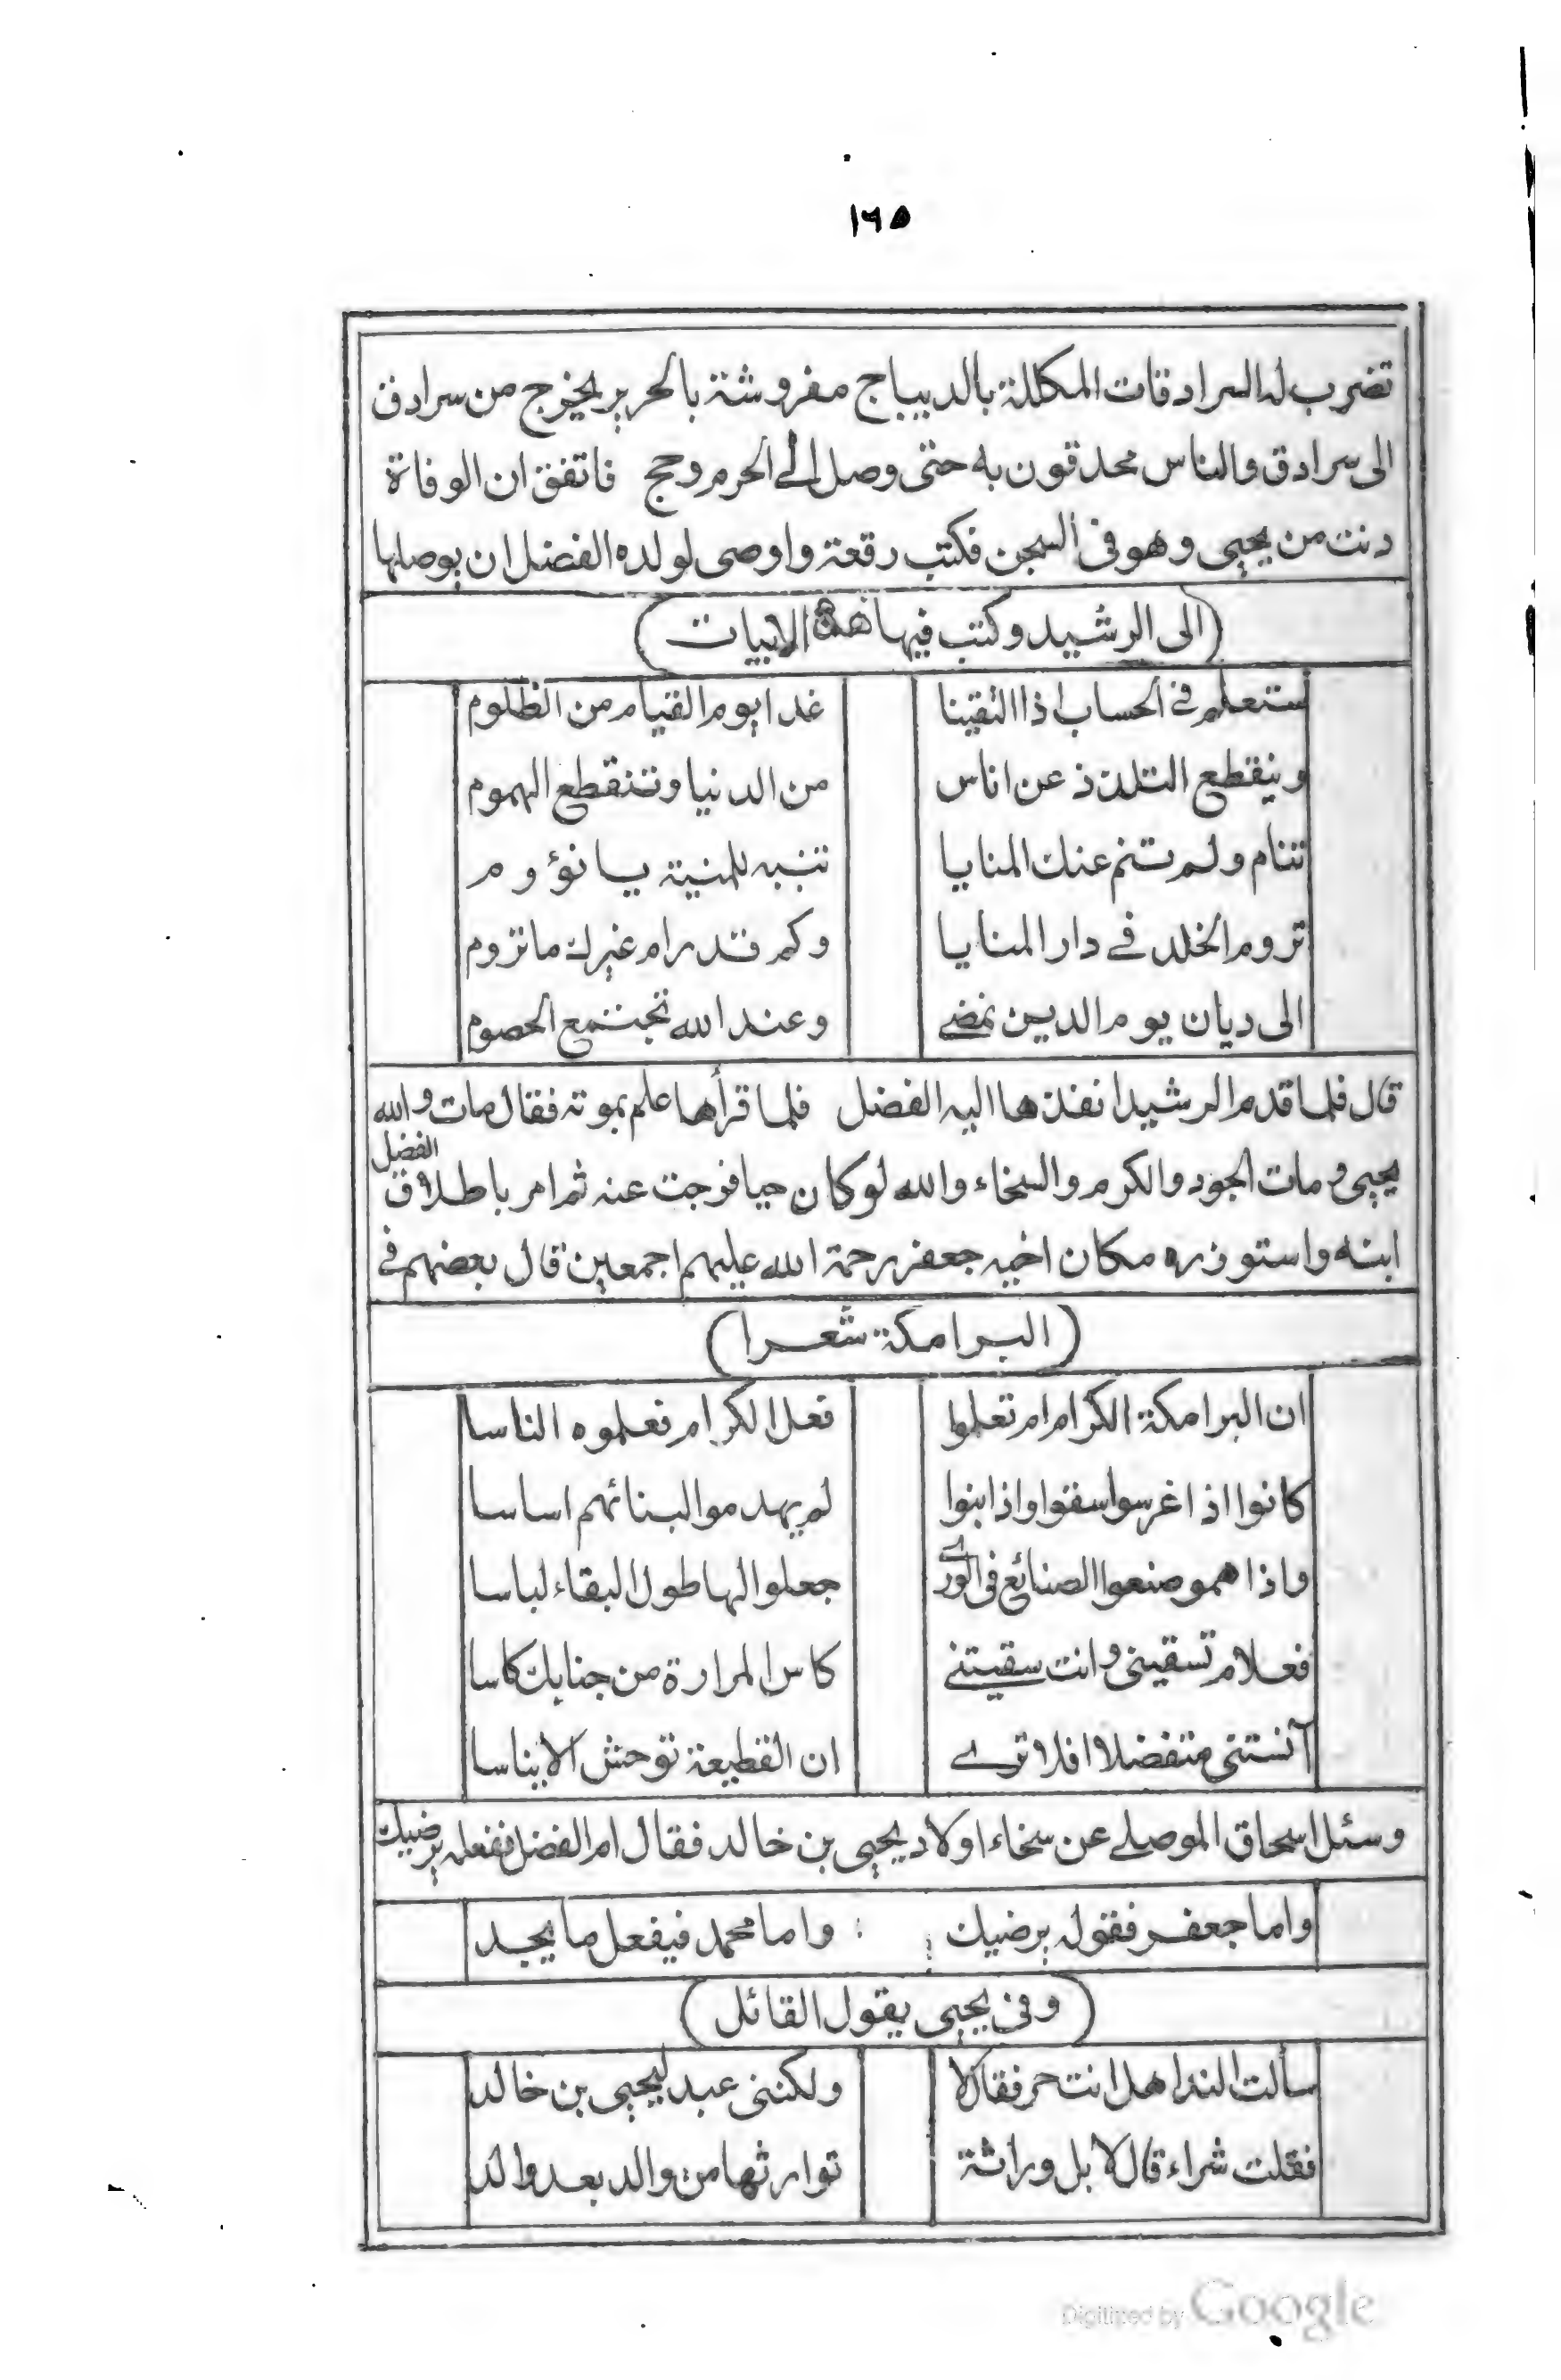 ١٦٥
تضرب له السرادقات المكللة بالديباج مفروشة بالحرير يخرج من سرادق
الى سرادق والناس محدقون به حتى وصل الى الحرم وحج فاتفق ان الوفاة
دنت من يحيى وهو فى السجن فكتب رقعة واوصى لولده الفضل ان يوصلها
(الى الرشيد وكتب فيها هذه الابيات)
ستعلم فى الحساب اذا التقينا غدا يوم القيام من الظلوم
وينقطع التلذذ عن اناس من الدنيا وتنقطع الهموم
تنام ولم تنم عنك المنايا تنبه للمنية يا نؤوم
تروم الخلد فے دار المنايا وكم قد رام غيرك ما تروم
الى ديان يوم الدين نمضے وعند الله تجتمع الخصوم
قال فلما قدم الرشيد انفذها اليه الفضل فلما قرأها علم بموته فقال مات والله
يحيى ومات الجود والكرم والسخاء والله لو كان حيا فرجت عنه ثم امر باطلاق الفضل
ابنه واستوزره مكان اخيه جعفر رحمة الله عليهم اجمعين قال بعضهم فى
(البرامكة شعرا)
ان البرامكة الكرام تعلموا فعل الكرام فعلموه الناسا
كانوا اذا غرسوا سقوا واذا بنوا لم يهدموا لبنائهم اساسا
واذا همو صنعوا الصنائع فى الورے جعلوا لها طول البقاء لباسا
فعلام تسقينى وانت سقيتنے كاس المرارة من جنابك كاسا
آنستنى متفضلا افلا ترے ان القطيعة توحش الايناسا
وسئل اسحاق الموصلے عن سخاء اولاد يحيى بن خالد فقال اما الفضل ففعله يرضيك
واما جعفر فقوله يرضيك واما محمد فيفعل ما يجد
(وفى يحيى يقول القائل)
سألت الندا هل انت حر فقال لا ولكننى عبد ليحيى بن خالد
فقلت شراء قال لا بل وراثة توارثها من والد بعد والد
Digitized by Google